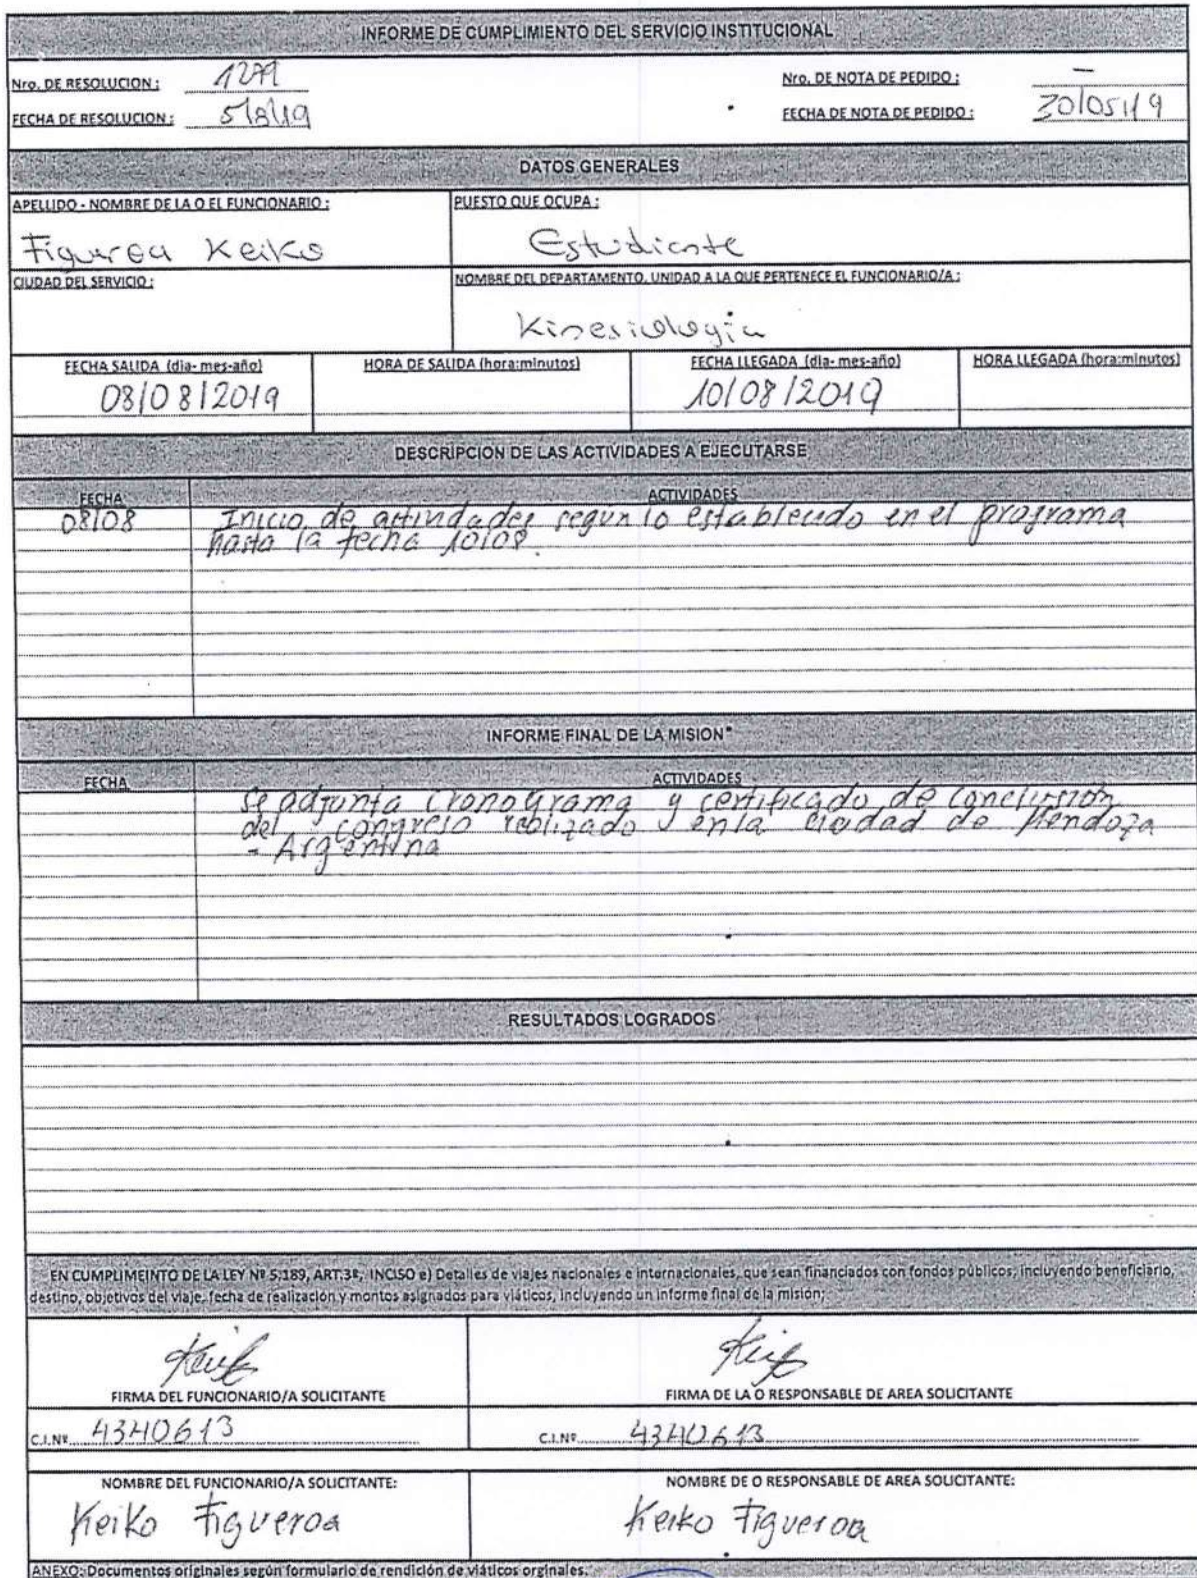 INFORME DE CUMPLIMIENTO DEL SERVICIO INSTITUCIONAL
Nro. DE RESOLUCION :
Nro. DE NOTA DE PEDIDO : —
FECHA DE RESOLUCION : 5/8/19
FECHA DE NOTA DE PEDIDO : 30/05/19
DATOS GENERALES
APELLIDO - NOMBRE DE LA O EL FUNCIONARIO :
PUESTO QUE OCUPA :
Figueroa Keiko
Estudiante
CIUDAD DEL SERVICIO :
NOMBRE DEL DEPARTAMENTO, UNIDAD A LA QUE PERTENECE EL FUNCIONARIO/A :
Kinesiologia
FECHA SALIDA (dia- mes-año)
HORA DE SALIDA (hora:minutos)
FECHA LLEGADA (dia- mes-año)
HORA LLEGADA (hora:minutos)
08/08/2019
10/08/2019
DESCRIPCION DE LAS ACTIVIDADES A EJECUTARSE
FECHA
ACTIVIDADES
08/08 Inicio de actividades segun lo establecido en el programa
hasta la fecha 10/08.
INFORME FINAL DE LA MISION*
FECHA
ACTIVIDADES
Se adjunta Cronograma y certificado de Conclusión
del congreso realizado en la ciudad de Mendoza
- Argentina
RESULTADOS LOGRADOS
EN CUMPLIMEINTO DE LA LEY Nº 5;189, ART.3º, INCISO e) Detalles de viajes nacionales e internacionales, que sean financiados con fondos públicos; incluyendo beneficiario,
destino, objetivos del viaje, fecha de realización y montos asignados para viáticos, incluyendo un informe final de la misión;
FIRMA DEL FUNCIONARIO/A SOLICITANTE
FIRMA DE LA O RESPONSABLE DE AREA SOLICITANTE
C.I.Nº 4340613
C.I.Nº 4340613
NOMBRE DEL FUNCIONARIO/A SOLICITANTE:
NOMBRE DE O RESPONSABLE DE AREA SOLICITANTE:
Keiko Figueroa
Keiko Figueroa
ANEXO: Documentos originales según formulario de rendición de viáticos orginales.